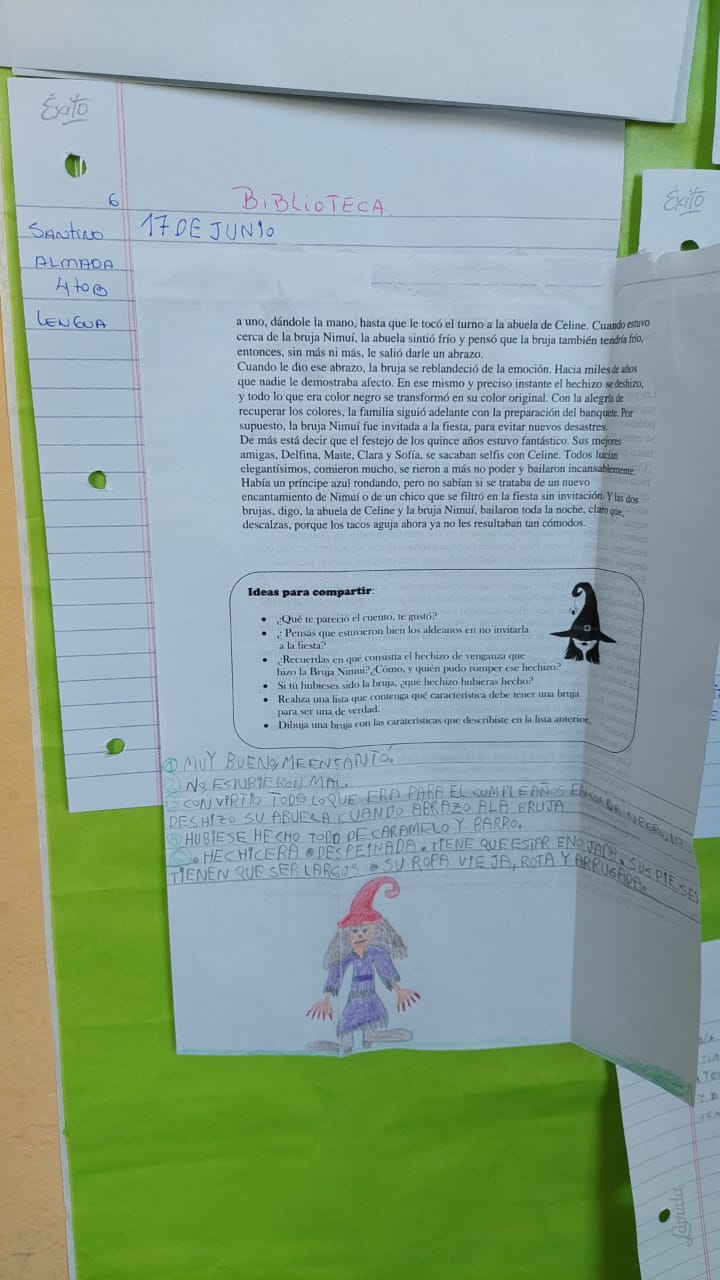 Éxito
Éxito
6
BIBLIOTECA.
SANTINO
17 DE JUNIO
ALMADA
4toB
LENGUA
a uno, dándole la mano, hasta que le tocó el turno a la abuela de Celine. Cuando estuvo
cerca de la bruja Nimuí, la abuela sintió frío y pensó que la bruja también tendría frío,
entonces, sin más ni más, le salió darle un abrazo.
Cuando le dio ese abrazo, la bruja se reblandeció de la emoción. Hacia miles de años
que nadie le demostraba afecto. En ese mismo y preciso instante el hechizo se deshizo,
y todo lo que era color negro se transformó en su color original. Con la alegría de
recuperar los colores, la familia siguió adelante con la preparación del banquete. Por
supuesto, la bruja Nimuí fue invitada a la fiesta, para evitar nuevos desastres.
De más está decir que el festejo de los quince años estuvo fantástico. Sus mejores
amigas, Delfina, Maite, Clara y Sofía, se sacaban selfis con Celine. Todos lucían
elegantísimos, comieron mucho, se rieron a más no poder y bailaron incansablemente.
Había un príncipe azul rondando, pero no sabían si se trataba de un nuevo
encantamiento de Nimuí o de un chico que se filtró en la fiesta sin invitación. Y las dos
brujas, digo, la abuela de Celine y la bruja Nimuí, bailaron toda la noche, claro que,
descalzas, porque los tacos aguja ahora ya no les resultaban tan cómodos.
Ideas para compartir:
• ¿Qué te pareció el cuento, te gustó?
• ¿ Pensás que estuvieron bien los aldeanos en no invitarla
a la fiesta?
• ¿Recuerdas en qué consistía el hechizo de venganza que
hizo la Bruja Nimuí?¿Cómo, y quién pudo romper ese hechizo?
• Si tú hubieses sido la bruja, ¿qué hechizo hubieras hecho?
• Realiza una lista que contenga qué característica debe tener una bruja
para ser una de verdad.
• Dibuja una bruja con las caraterísticas que describiste en la lista anterior.
1 MUY BUENO, ME ENSANTÓ.
2 NO, ESTUBIERON MAL.
3 CONVIRTIO TODO LO QUE ERA PARA EL CUMPLEAÑOS EN COLOR NEGRO, LO
DESHIZO SU ABUELA CUANDO ABRAZO A LA BRUJA
4 HUBIESE HECHO TODO DE CARAMELO Y BARRO.
5 • HECHICERA • DESPEINADA • TIENE QUE ESTAR ENOJADA • SUS PIESES
TIENEN QUE SER LARGOS • SU ROPA VIEJA, ROTA Y ARRUGADA.